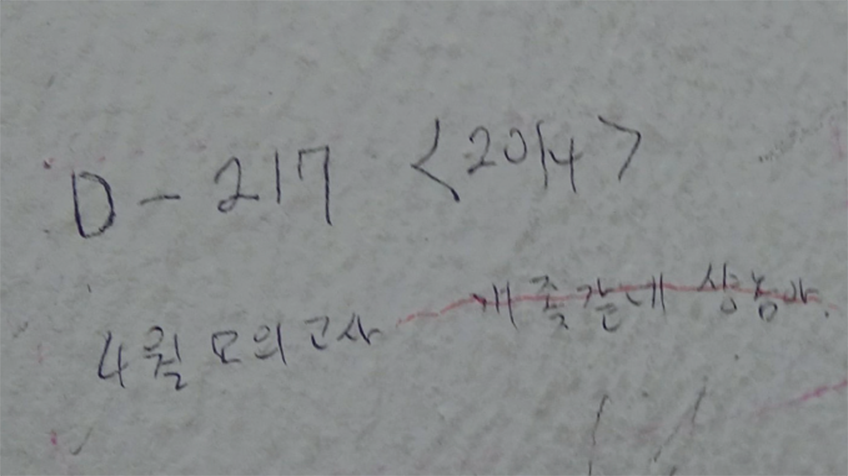 D-217 <2014>
4월 모의고사 개좆같네 쌍놈아.